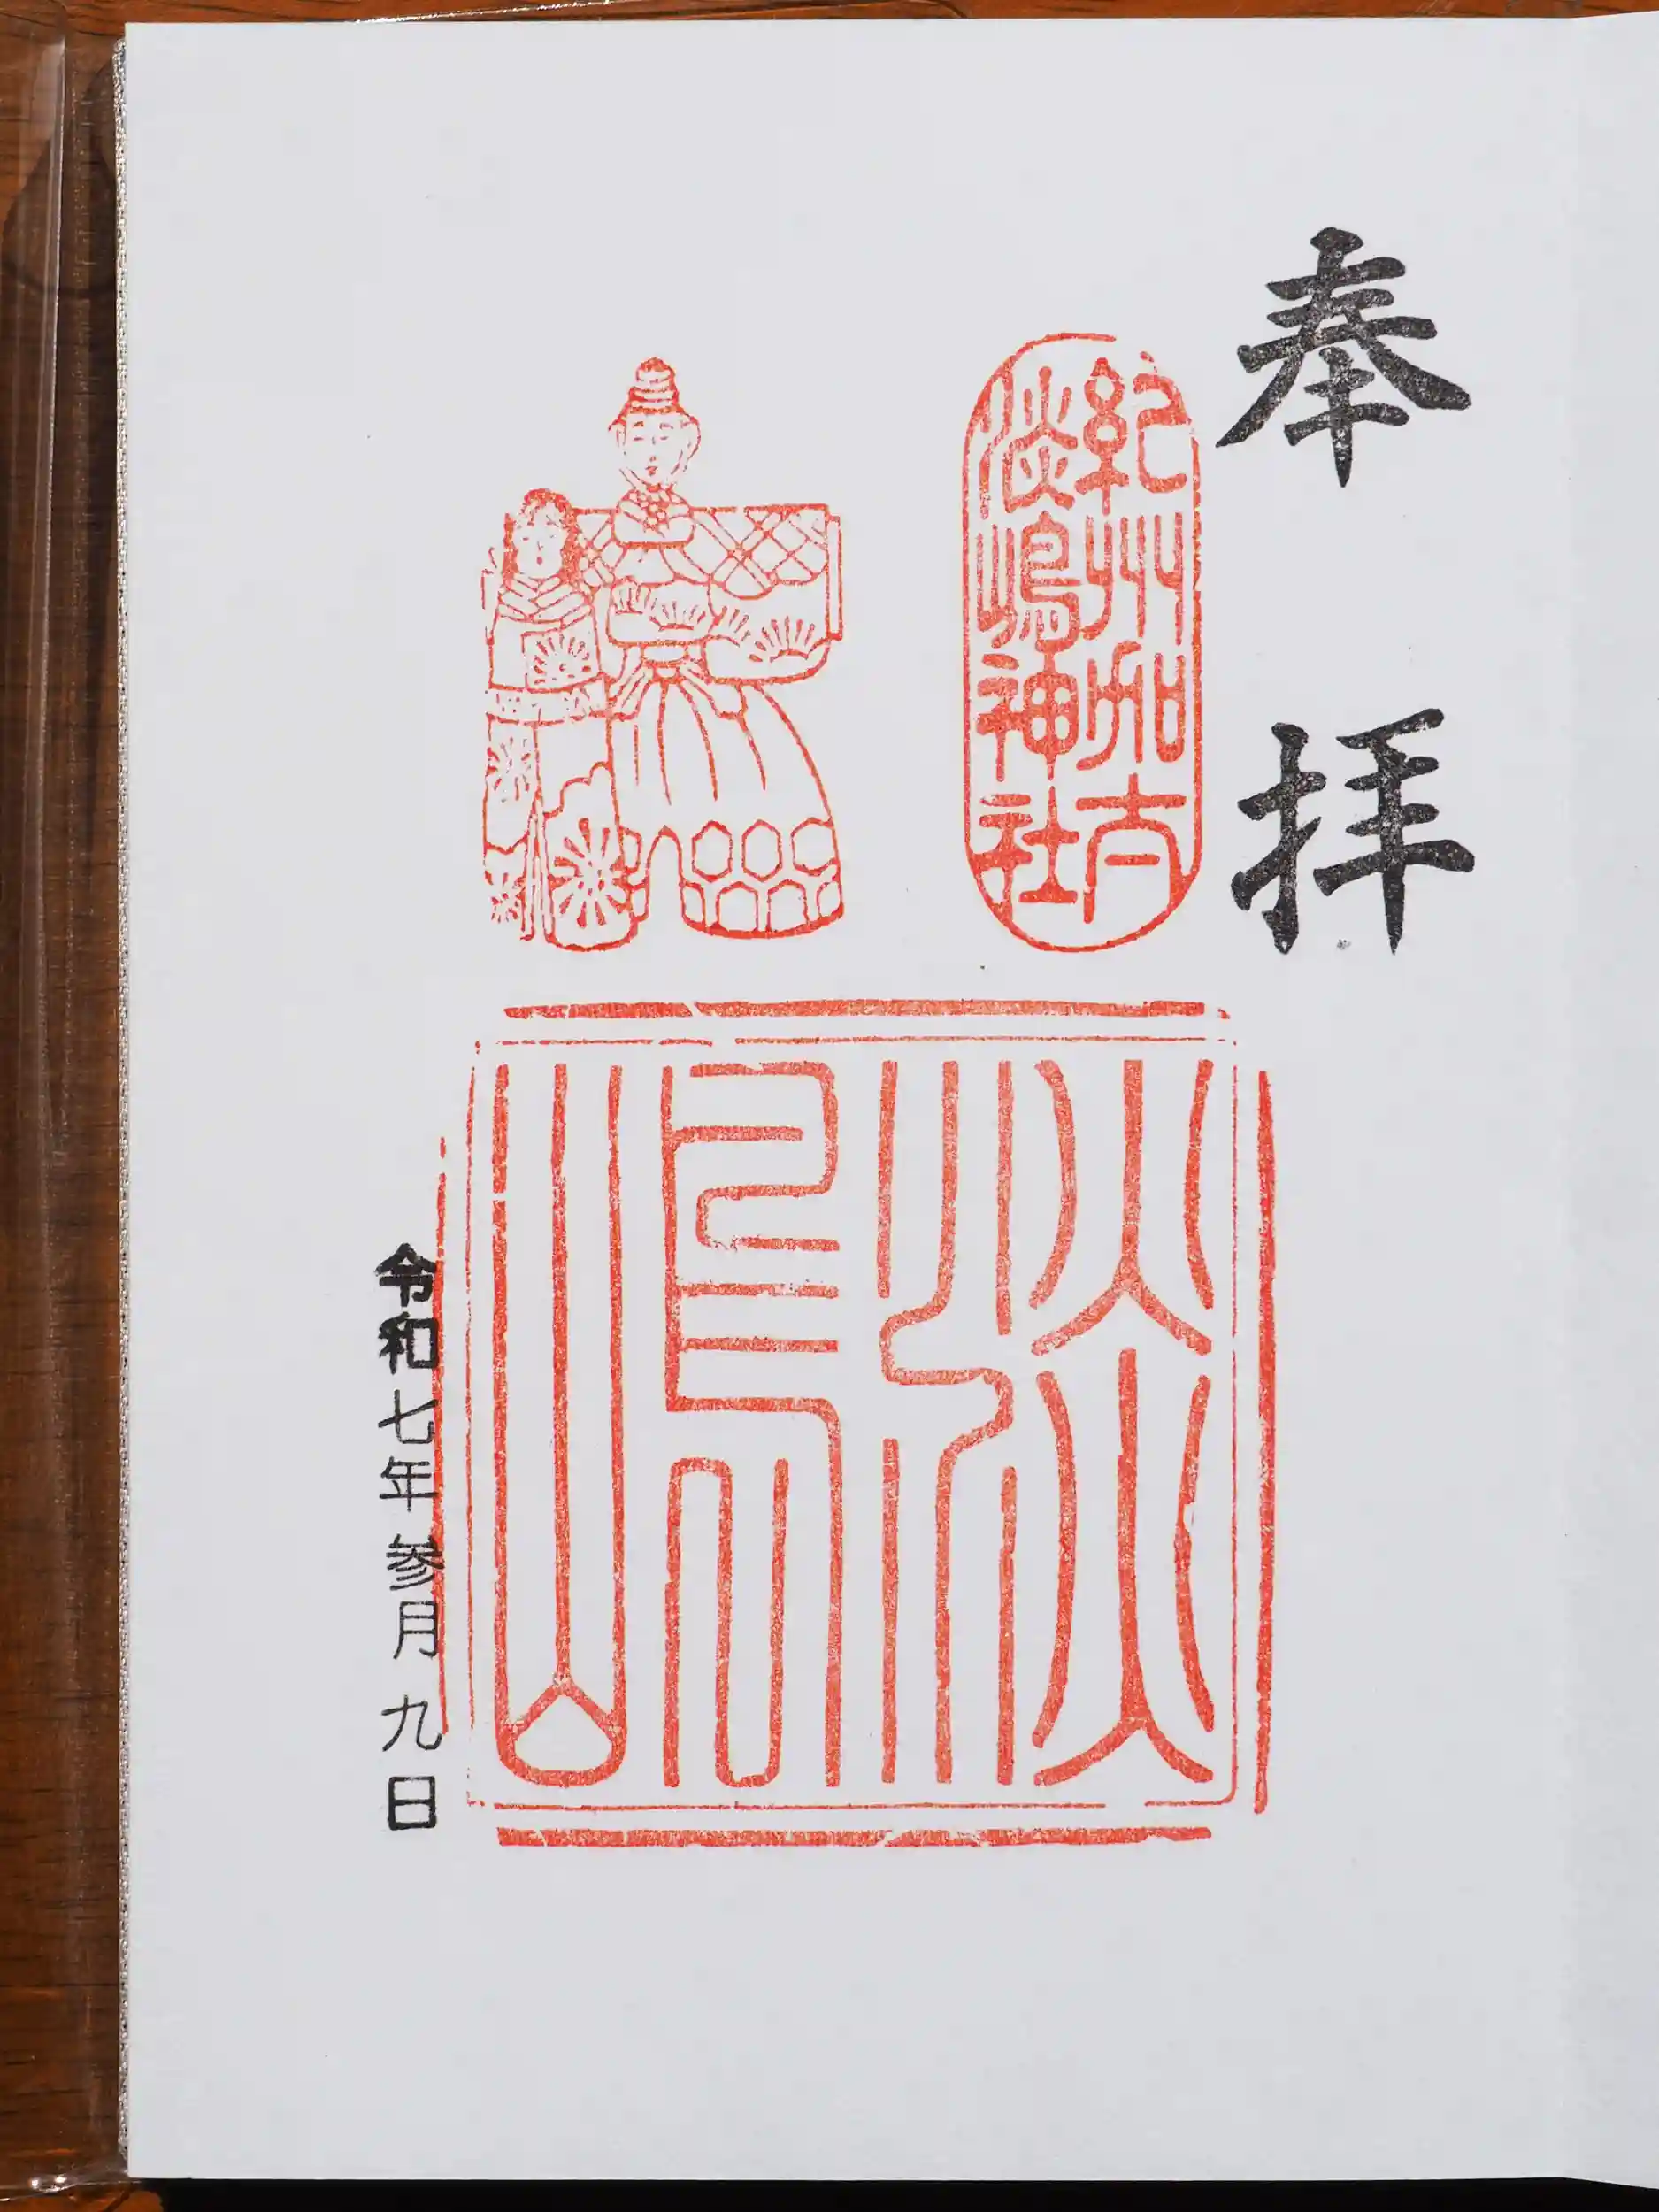 奉拝
紀州加太
淡嶋神社
淡嶋
令和七年参月九日